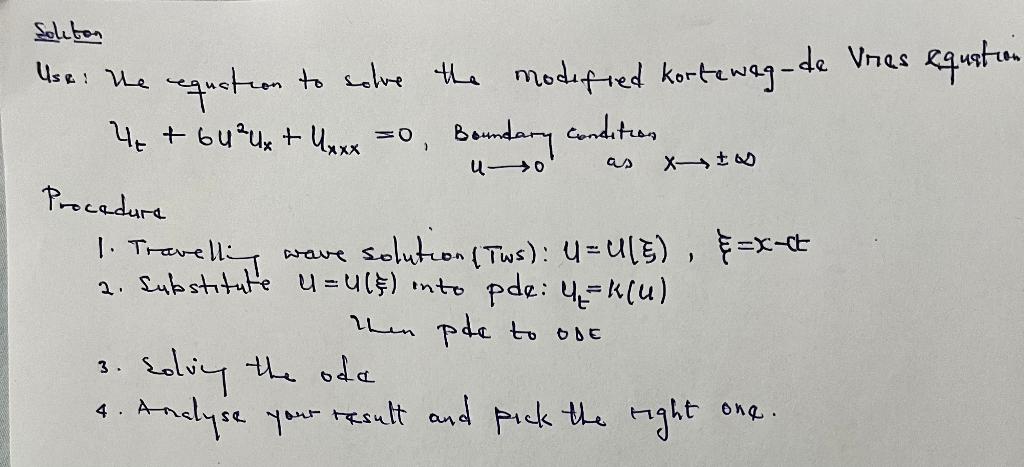 Soliton
Use: The equation to solve the modified Korteweg-de Vries Equation
u_t + 6u²u_x + u_xxx = 0, Boundary condition
u → 0 as x → ±∞
Procedure
1. Travelling wave solution (TWS): u = u(ξ), ξ = x-ct
2. Substitute u = u(ξ) into pde: u_t = K(u)
Then pde to ODE
3. Solving the ode
4. Analyse your result and pick the right one.